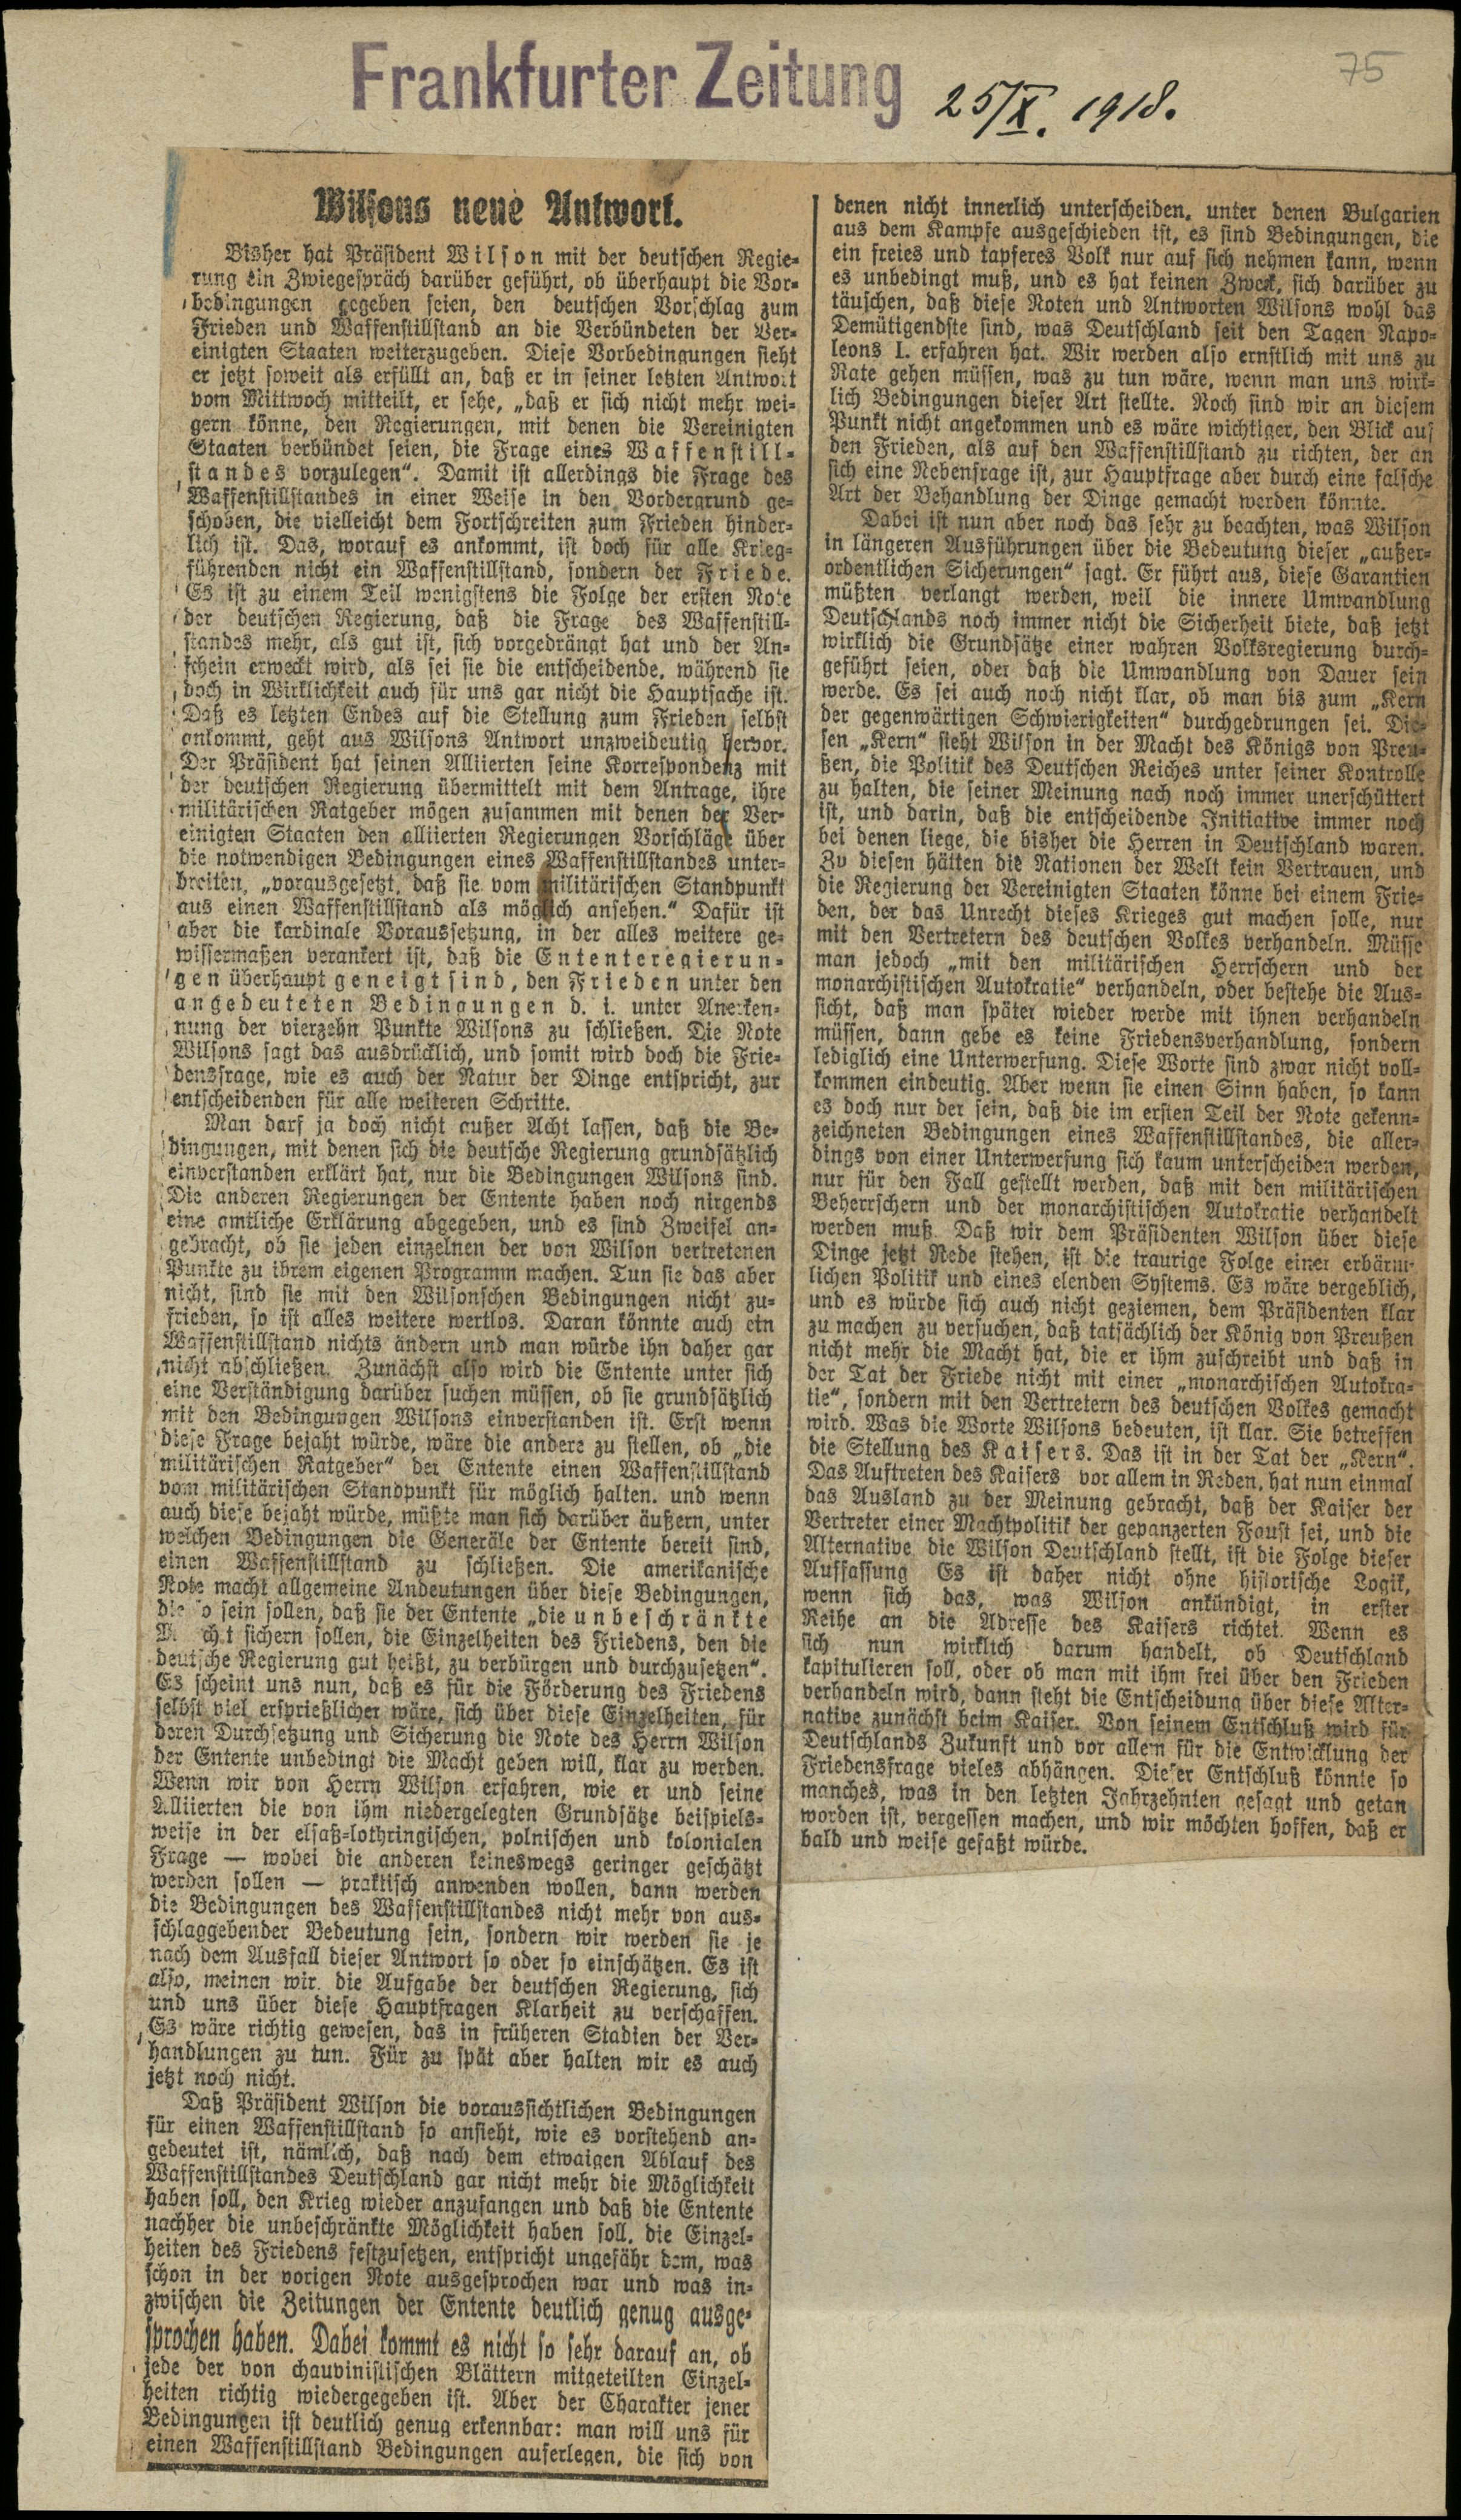 Frankfurter Zeitung
25/X. 1918.
75
Wilsons neue Antwort.
Bisher hat Präsident Wilson mit der deutschen Regie-
rung ein Zwiegespräch darüber geführt, ob überhaupt die Vor-
bedingungen gegeben seien, den deutschen Vorschlag zum
Frieden und Waffenstillstand an die Verbündeten der Ver-
einigten Staaten weiterzugeben. Diese Vorbedingungen sieht
er jetzt soweit als erfüllt an, daß er in seiner letzten Antwort
vom Mittwoch mitteilt, er sehe, „daß er sich nicht mehr wei-
gern könne, den Regierungen, mit denen die Vereinigten
Staaten verbündet seien, die Frage eines Waffenstill-
standes vorzulegen“. Damit ist allerdings die Frage des
Waffenstillstandes in einer Weise in den Vordergrund ge-
schoben, die vielleicht dem Fortschreiten zum Frieden hinder-
lich ist. Das, worauf es ankommt, ist doch für alle Krieg-
führenden nicht ein Waffenstillstand, sondern der Friede.
Es ist zu einem Teil wenigstens die Folge der ersten Note
der deutschen Regierung, daß die Frage des Waffenstill-
standes mehr, als gut ist, sich vorgedrängt hat und der An-
schein erweckt wird, als sei sie die entscheidende, während sie
doch in Wirklichkeit auch für uns gar nicht die Hauptsache ist.
Daß es letzten Endes auf die Stellung zum Frieden selbst
ankommt, geht aus Wilsons Antwort unzweideutig hervor.
Der Präsident hat seinen Alliierten seine Korrespondenz mit
der deutschen Regierung übermittelt mit dem Antrage, ihre
militärischen Ratgeber mögen zusammen mit denen der Ver-
einigten Staaten den alliierten Regierungen Vorschläge über
die notwendigen Bedingungen eines Waffenstillstandes unter-
breiten, „vorausgesetzt, daß sie vom militärischen Standpunkt
aus einen Waffenstillstand als möglich ansehen.“ Dafür ist
aber die kardinale Voraussetzung, in der alles weitere ge-
wissermaßen verankert ist, daß die Ententeregierun-
gen überhaupt geneigt sind, den Frieden unter den
angedeuteten Bedingungen d. i. unter Anerken-
nung der vierzehn Punkte Wilsons zu schließen. Die Note
Wilsons sagt das ausdrücklich, und somit wird doch die Frie-
densfrage, wie es auch der Natur der Dinge entspricht, zur
entscheidenden für alle weiteren Schritte.
Man darf ja doch nicht außer Acht lassen, daß die Be-
dingungen, mit denen sich die deutsche Regierung grundsätzlich
einverstanden erklärt hat, nur die Bedingungen Wilsons sind.
Die anderen Regierungen der Entente haben noch nirgends
eine amtliche Erklärung abgegeben, und es sind Zweifel an-
gebracht, ob sie jeden einzelnen der von Wilson vertretenen
Punkte zu ihrem eigenen Programm machen. Tun sie das aber
nicht, sind sie mit den Wilsonschen Bedingungen nicht zu-
frieden, so ist alles weitere wertlos. Daran könnte auch ein
Waffenstillstand nichts ändern und man würde ihn daher gar
nicht abschließen. Zunächst also wird die Entente unter sich
eine Verständigung darüber suchen müssen, ob sie grundsätzlich
mit den Bedingungen Wilsons einverstanden ist. Erst wenn
diese Frage bejaht würde, wäre die andere zu stellen, ob „die
militärischen Ratgeber“ der Entente einen Waffenstillstand
vom militärischen Standpunkt für möglich halten, und wenn
auch diese bejaht würde, müßte man sich darüber äußern, unter
welchen Bedingungen die Generäle der Entente bereit sind,
einen Waffenstillstand zu schließen. Die amerikanische
Note macht allgemeine Andeutungen über diese Bedingungen,
die so sein sollen, daß sie der Entente „die unbeschränkte
Macht sichern sollen, die Einzelheiten des Friedens, den die
deutsche Regierung gut heißt, zu verbürgen und durchzusetzen“.
Es scheint uns nun, daß es für die Förderung des Friedens
selbst viel ersprießlicher wäre, sich über diese Einzelheiten, für
deren Durchsetzung und Sicherung die Note des Herrn Wilson
der Entente unbedingt die Macht geben will, klar zu werden.
Wenn wir von Herrn Wilson erfahren, wie er und seine
Alliierten die von ihm niedergelegten Grundsätze beispiels-
weise in der elsaß-lothringischen, polnischen und kolonialen
Frage — wobei die anderen keineswegs geringer geschätzt
werden sollen — praktisch anwenden wollen, dann werden
die Bedingungen des Waffenstillstandes nicht mehr von aus-
schlaggebender Bedeutung sein, sondern wir werden sie je
nach dem Ausfall dieser Antwort so oder so einschätzen. Es ist
also, meinen wir, die Aufgabe der deutschen Regierung, sich
und uns über diese Hauptfragen Klarheit zu verschaffen.
Es wäre richtig gewesen, das in früheren Stadien der Ver-
handlungen zu tun. Für zu spät aber halten wir es auch
jetzt noch nicht.
Daß Präsident Wilson die voraussichtlichen Bedingungen
für einen Waffenstillstand so ansieht, wie es vorstehend an-
gedeutet ist, nämlich, daß nach dem etwaigen Ablauf des
Waffenstillstandes Deutschland gar nicht mehr die Möglichkeit
haben soll, den Krieg wieder anzufangen und daß die Entente
nachher die unbeschränkte Möglichkeit haben soll, die Einzel-
heiten des Friedens festzusetzen, entspricht ungefähr dem, was
schon in der vorigen Note ausgesprochen war und was in-
zwischen die Zeitungen der Entente deutlich genug ausge-
sprochen haben. Dabei kommt es nicht so sehr darauf an, ob
jede der von chauvinistischen Blättern mitgeteilten Einzel-
heiten richtig wiedergegeben ist. Aber der Charakter jener
Bedingungen ist deutlich genug erkennbar: man will uns für
einen Waffenstillstand Bedingungen auferlegen, die sich von
denen nicht innerlich unterscheiden, unter denen Bulgarien
aus dem Kampfe ausgeschieden ist, es sind Bedingungen, die
ein freies und tapferes Volk nur auf sich nehmen kann, wenn
es unbedingt muß, und es hat keinen Zweck, sich darüber zu
täuschen, daß diese Noten und Antworten Wilsons wohl das
Demütigendste sind, was Deutschland seit den Tagen Napo-
leons I. erfahren hat. Wir werden also ernstlich mit uns zu
Rate gehen müssen, was zu tun wäre, wenn man uns wirk-
lich Bedingungen dieser Art stellte. Noch sind wir an diesem
Punkt nicht angekommen und es wäre wichtiger, den Blick auf
den Frieden, als auf den Waffenstillstand zu richten, der an
sich eine Nebenfrage ist, zur Hauptfrage aber durch eine falsche
Art der Behandlung der Dinge gemacht werden könnte.
Dabei ist nun aber noch das sehr zu beachten, was Wilson
in längeren Ausführungen über die Bedeutung dieser „außer-
ordentlichen Sicherungen“ sagt. Er führt aus, diese Garantien
müßten verlangt werden, weil die innere Umwandlung
Deutschlands noch immer nicht die Sicherheit biete, daß jetzt
wirklich die Grundsätze einer wahren Volksregierung durch-
geführt seien, oder daß die Umwandlung von Dauer sein
werde. Es sei auch noch nicht klar, ob man bis zum „Kern
der gegenwärtigen Schwierigkeiten“ durchgedrungen sei. Die-
sen „Kern“ sieht Wilson in der Macht des Königs von Preu-
ßen, die Politik des Deutschen Reiches unter seiner Kontrolle
zu halten, die seiner Meinung nach noch immer unerschüttert
ist, und darin, daß die entscheidende Initiative immer noch
bei denen liege, die bisher die Herren in Deutschland waren.
Zu diesen hätten die Nationen der Welt kein Vertrauen, und
die Regierung der Vereinigten Staaten könne bei einem Frie-
den, der das Unrecht dieses Krieges gut machen solle, nur
mit den Vertretern des deutschen Volkes verhandeln. Müsse
man jedoch „mit den militärischen Herrschern und der
monarchistischen Autokratie“ verhandeln, oder bestehe die Aus-
sicht, daß man später wieder werde mit ihnen verhandeln
müssen, dann gebe es keine Friedensverhandlung, sondern
lediglich eine Unterwerfung. Diese Worte sind zwar nicht voll-
kommen eindeutig. Aber wenn sie einen Sinn haben, so kann
es doch nur der sein, daß die im ersten Teil der Note gekenn-
zeichneten Bedingungen eines Waffenstillstandes, die aller-
dings von einer Unterwerfung sich kaum unterscheiden werden,
nur für den Fall gestellt werden, daß mit den militärischen
Beherrschern und der monarchistischen Autokratie verhandelt
werden muß. Daß wir dem Präsidenten Wilson über diese
Dinge jetzt Rede stehen, ist die traurige Folge einer erbärm-
lichen Politik und eines elenden Systems. Es wäre vergeblich,
und es würde sich auch nicht geziemen, dem Präsidenten klar
zu machen zu versuchen, daß tatsächlich der König von Preußen
nicht mehr die Macht hat, die er ihm zuschreibt und daß in
der Tat der Friede nicht mit einer „monarchischen Autokra-
tie“, sondern mit den Vertretern des deutschen Volkes gemacht
wird. Was die Worte Wilsons bedeuten, ist klar. Sie betreffen
die Stellung des Kaisers. Das ist in der Tat der „Kern“.
Das Auftreten des Kaisers vor allem in Reden, hat nun einmal
das Ausland zu der Meinung gebracht, daß der Kaiser der
Vertreter einer Machtpolitik der gepanzerten Faust sei, und die
Alternative, die Wilson Deutschland stellt, ist die Folge dieser
Auffassung Es ist daher nicht ohne historische Logik,
wenn sich das, was Wilson ankündigt, in erster
Reihe an die Adresse des Kaisers richtet. Wenn es
sich nun wirklich darum handelt, ob Deutschland
kapitulieren soll, oder ob man mit ihm frei über den Frieden
verhandeln wird, dann steht die Entscheidung über diese Alter-
native zunächst beim Kaiser. Von seinem Entschluß wird für
Deutschlands Zukunft und vor allem für die Entwicklung der
Friedensfrage vieles abhängen. Dieser Entschluß könnte so
manches, was in den letzten Jahrzehnten gesagt und getan
worden ist, vergessen machen, und wir möchten hoffen, daß er
bald und weise gefaßt würde.